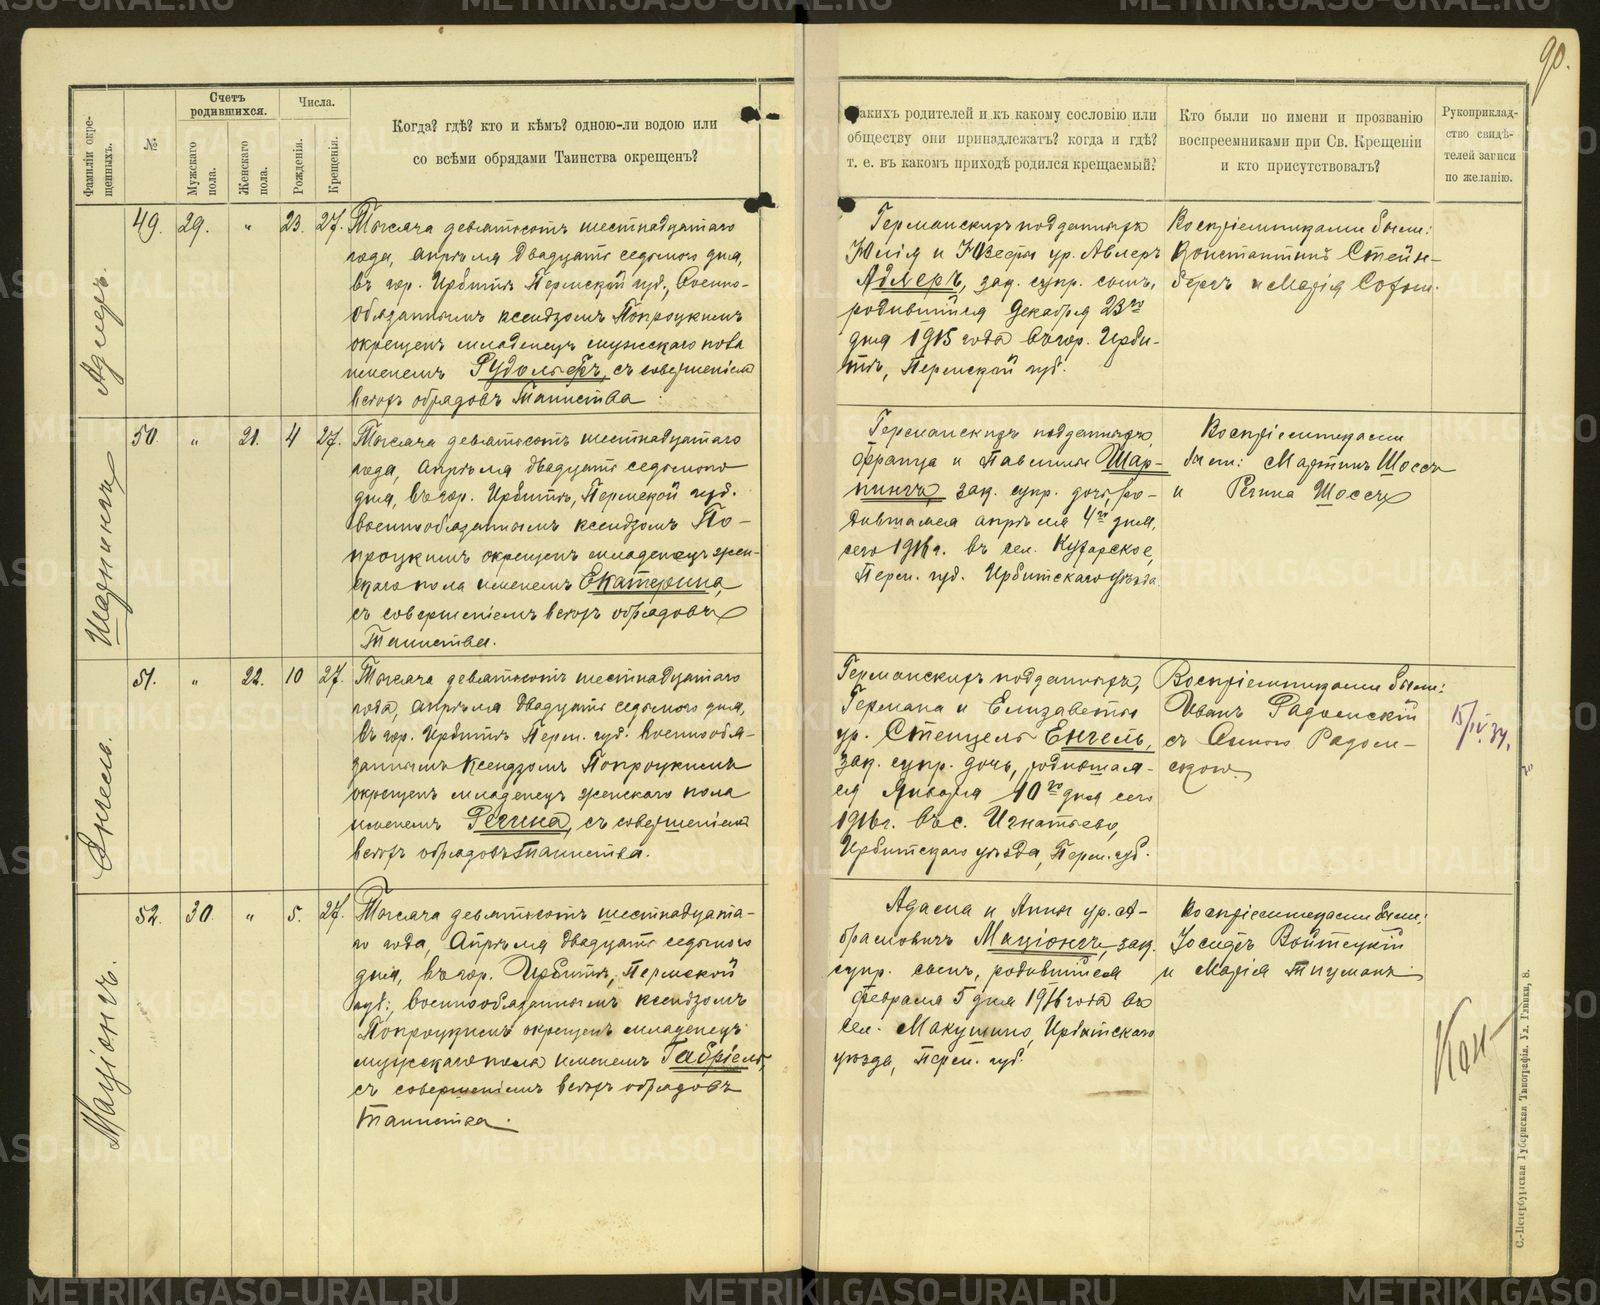 90.
Фамиліи окрещенныхъ.
№
Счетъ родившихся.
Мужскаго пола.
Женскаго пола.
Числа.
Рожденія.
Крещенія.
Когда? гдѣ? кто и кѣмъ? одною-ли водою или
со всѣми обрядами Таинства окрещенъ?
Какихъ родителей и къ какому сословію или
обществу они принадлежатъ? когда и гдѣ?
т. е. въ какомъ приходѣ родился крещаемый?
Кто были по имени и прозванію
воспреемниками при Св. Крещеніи
и кто присутствовалъ?
Рукоприклад-
ство свидѣ-
телей записи
по желанію.
Адлеръ.
49. 29. „ 23. 27.
Тысяча девятьсотъ шестнадцатаго
года, апрѣля двадцать седьмого дня,
въ гор. Ирбитѣ Пермской губ., Военно-
обязаннымъ ксендзомъ Попроцкимъ
окрещенъ младенецъ мужскаго пола
именемъ Рудольфъ, съ совершеніемъ
всѣхъ обрядовъ Таинства.
Германскихъ подданныхъ
Юлія и Юзефы ур. Авлеръ
Адлеръ, зак. супр. сынъ,
родившійся Декабря 23го
дня 1915 года въ гор. Ирби-
тѣ, Пермской губ.
Воспріемниками были:
Константинъ Стейн-
бергъ и Марія
Шарпингъ
50. „ 21. 4 27.
Тысяча девятьсотъ шестнадцатаго
года, апрѣля двадцать седьмого
дня, въ гор. Ирбитѣ, Пермской губ.
военнообязаннымъ ксендзомъ По-
процкимъ окрещенъ младенецъ жен-
скаго пола именемъ Екатерина,
съ совершеніемъ всѣхъ обрядовъ
Таинства.
Германскихъ подданныхъ,
Франца и Павлины Шар-
пингъ, зак. супр. дочь, ро-
дившаяся апрѣля 4го дня,
сего 1916 г. въ сел. Кухарское,
Перм. губ. Ирбитскаго уѣзда
Воспріемниками
были: Мартинъ Шоссъ
и Регина Шоссъ
Енгель.
51. „ 22. 10 27.
Тысяча девятьсотъ шестнадцатаго
года, апрѣля двадцать седьмого дня,
въ гор. Ирбитѣ Перм. губ. Военнообя-
заннымъ Ксендзомъ Попроцкимъ
окрещенъ младенецъ женскаго пола
именемъ Регина, съ совершеніемъ
всѣхъ обрядовъ Таинства.
Германскихъ подданныхъ,
Германа и Елизаветы
ур. Стенцель Енгель,
зак. супр. дочь, родившая-
ся Января 10го дня сего
1916 г. въ с. Игнатьево,
Ирбитскаго уѣзда, Перм. губ.
Воспріемниками были:
Иванъ Радомскій
съ Анною Радом-
скою.
15/IV 34.
Маціонгъ.
52. 30. „ 5. 27.
Тысяча девятьсотъ шестнадцата-
го года, Апрѣля двадцать седьмого
дня, въ гор. Ирбитѣ, Пермской
губ., военнообязаннымъ ксендзомъ
Попроцкимъ окрещенъ младенецъ
мужскаго пола именемъ Габріель,
съ совершеніемъ всѣхъ обрядовъ
Таинства.
Адама и Анны ур. А-
брамовичъ Маціонгъ, зак.
супр. сынъ, родившійся
февраля 5 дня 1916 года въ
сел. Макушино, Ирбитскаго
уѣзда, Перм. губ.
Воспріемниками были:
Іосифъ Войтецкій
и Марія
Кон-
С.-Петербургская Губернская Типографія. Ул. Глинки, 8.
METRIKI.GASO-URAL.RU